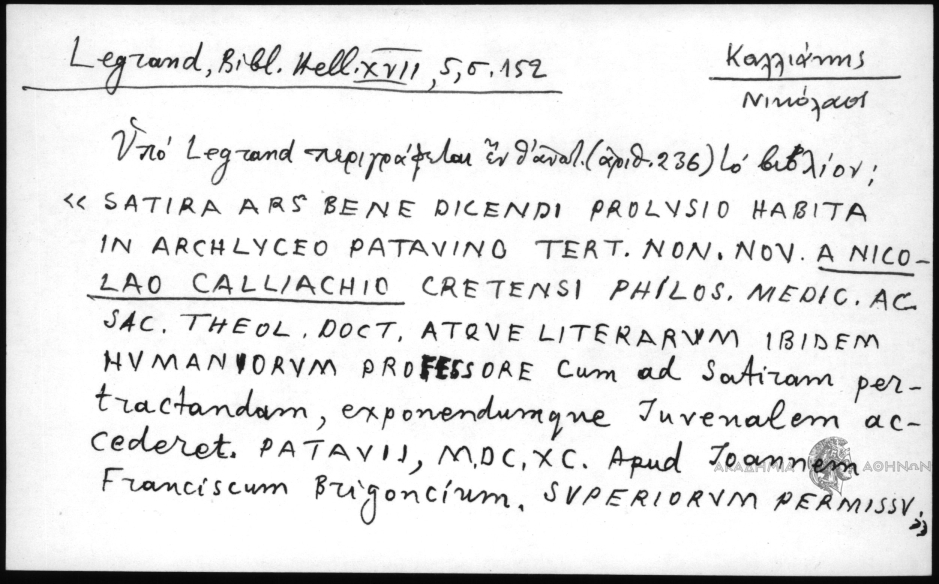 Legrand, Bibl. Hell. XVII, 5, σ. 152
Καλλιάκης
Νικόλαος
Ὑπό Legrand περιγράφεται (ἀριθ. 236) τό βιβλίον;
«SATIRA ARS BENE DICENDI PROLVSIO HABITA
IN ARCHLYCEO PATAVINO TERT. NON. NOV. A NICO-
LAO CALLIACHIO CRETENSI PHILOS. MEDIC. AC
SAC. THEOL. DOCT. ATQVE LITERARVM IBIDEM
HVMANIORVM PROFESSORE Cum ad Satiram per-
tractandam, exponendumque Iuvenalem ac-
cederet. PATAVIJ, M.DC.XC. Apud Ioannem
ΑΚΑΔΗΜΙΑ ΑΘΗΝΩΝ
Franciscum Brigoncium. SVPERIORVM PERMISSV.»